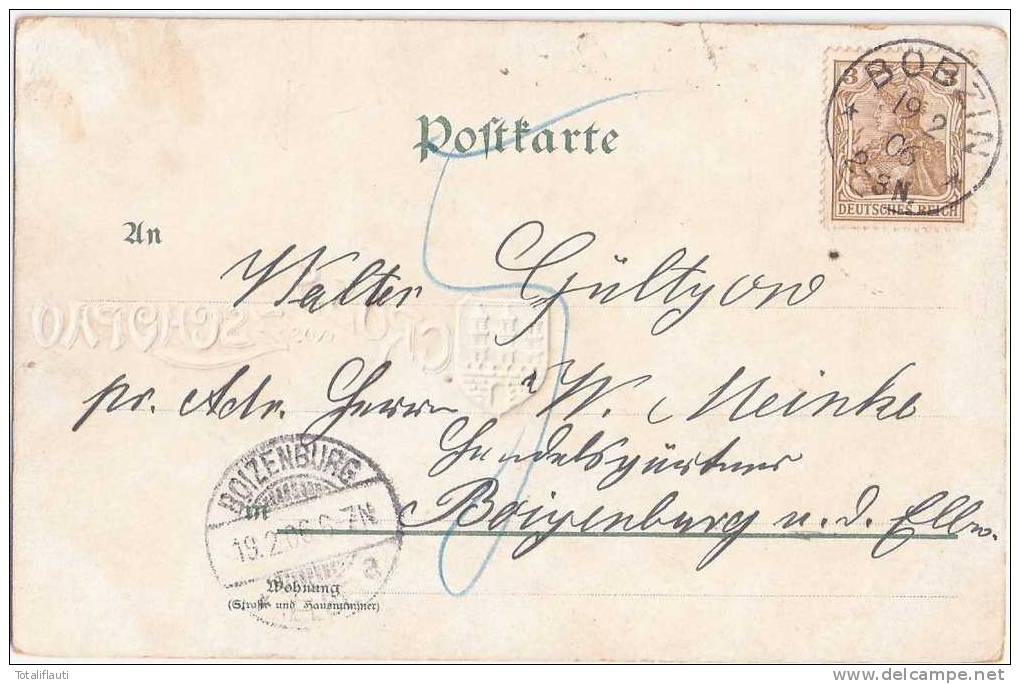 Postkarte
3 3
DEUTSCHES REICH
* BOBZIN *
19 2
06
An
Walter Gültzow
pr. Adr. Herrn W. Meinke
Handelsgärtner
in
Boizenburg a. d. Elbe.
BOIZENBURG
19.2.06.6-7N
a
Wohnung
(Straße und Hausnummer)
Totaliflauti
www.delcampe.net